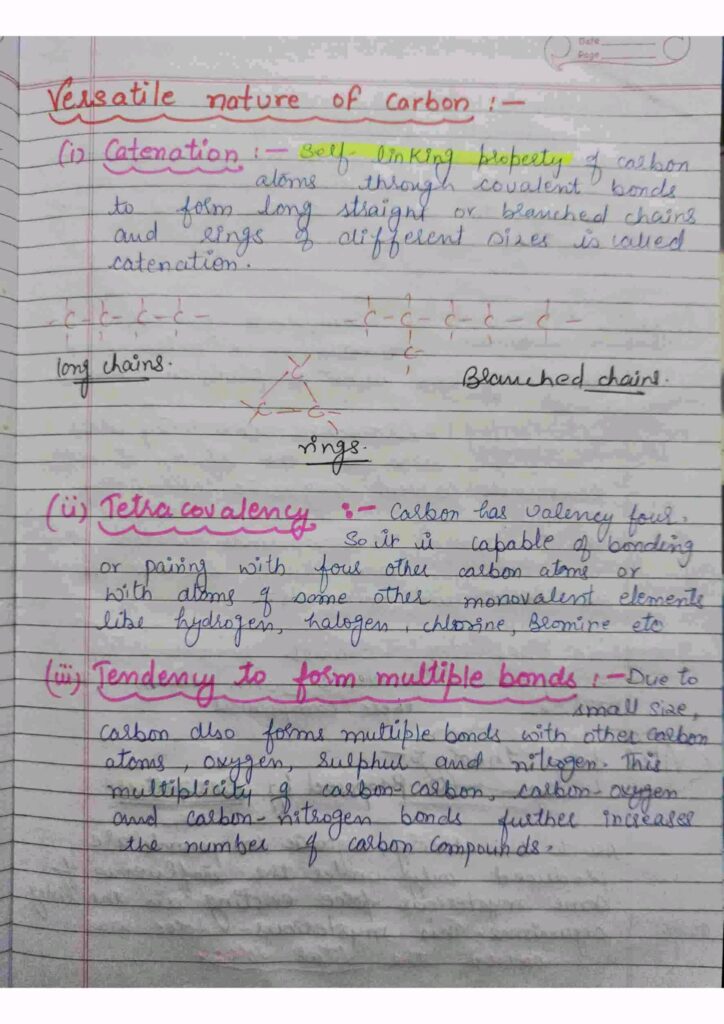 Date
Page
Versatile nature of carbon :-
(i) Catenation :- Self-linking property of carbon
atoms through covalent bonds
to form long straight or branched chains
and rings of different sizes is called
catenation.
- C - C - C - C -
- C - C - C - C - C -
C -
long chains.
C
Branched chains.
C - C -
rings.
(ii) Tetra covalency :- Carbon has valency four.
So it is capable of bonding
or pairing with four other carbon atoms or
with atoms of some other monovalent elements
like hydrogen, halogen, chlorine, Bromine etc
(iii) Tendency to form multiple bonds :- Due to
small size,
carbon also forms multiple bonds with other carbon
atoms, oxygen, sulphur and nitrogen. This
multiplicity of carbon-carbon, carbon-oxygen
and carbon-nitrogen bonds further increases
the number of carbon compounds.